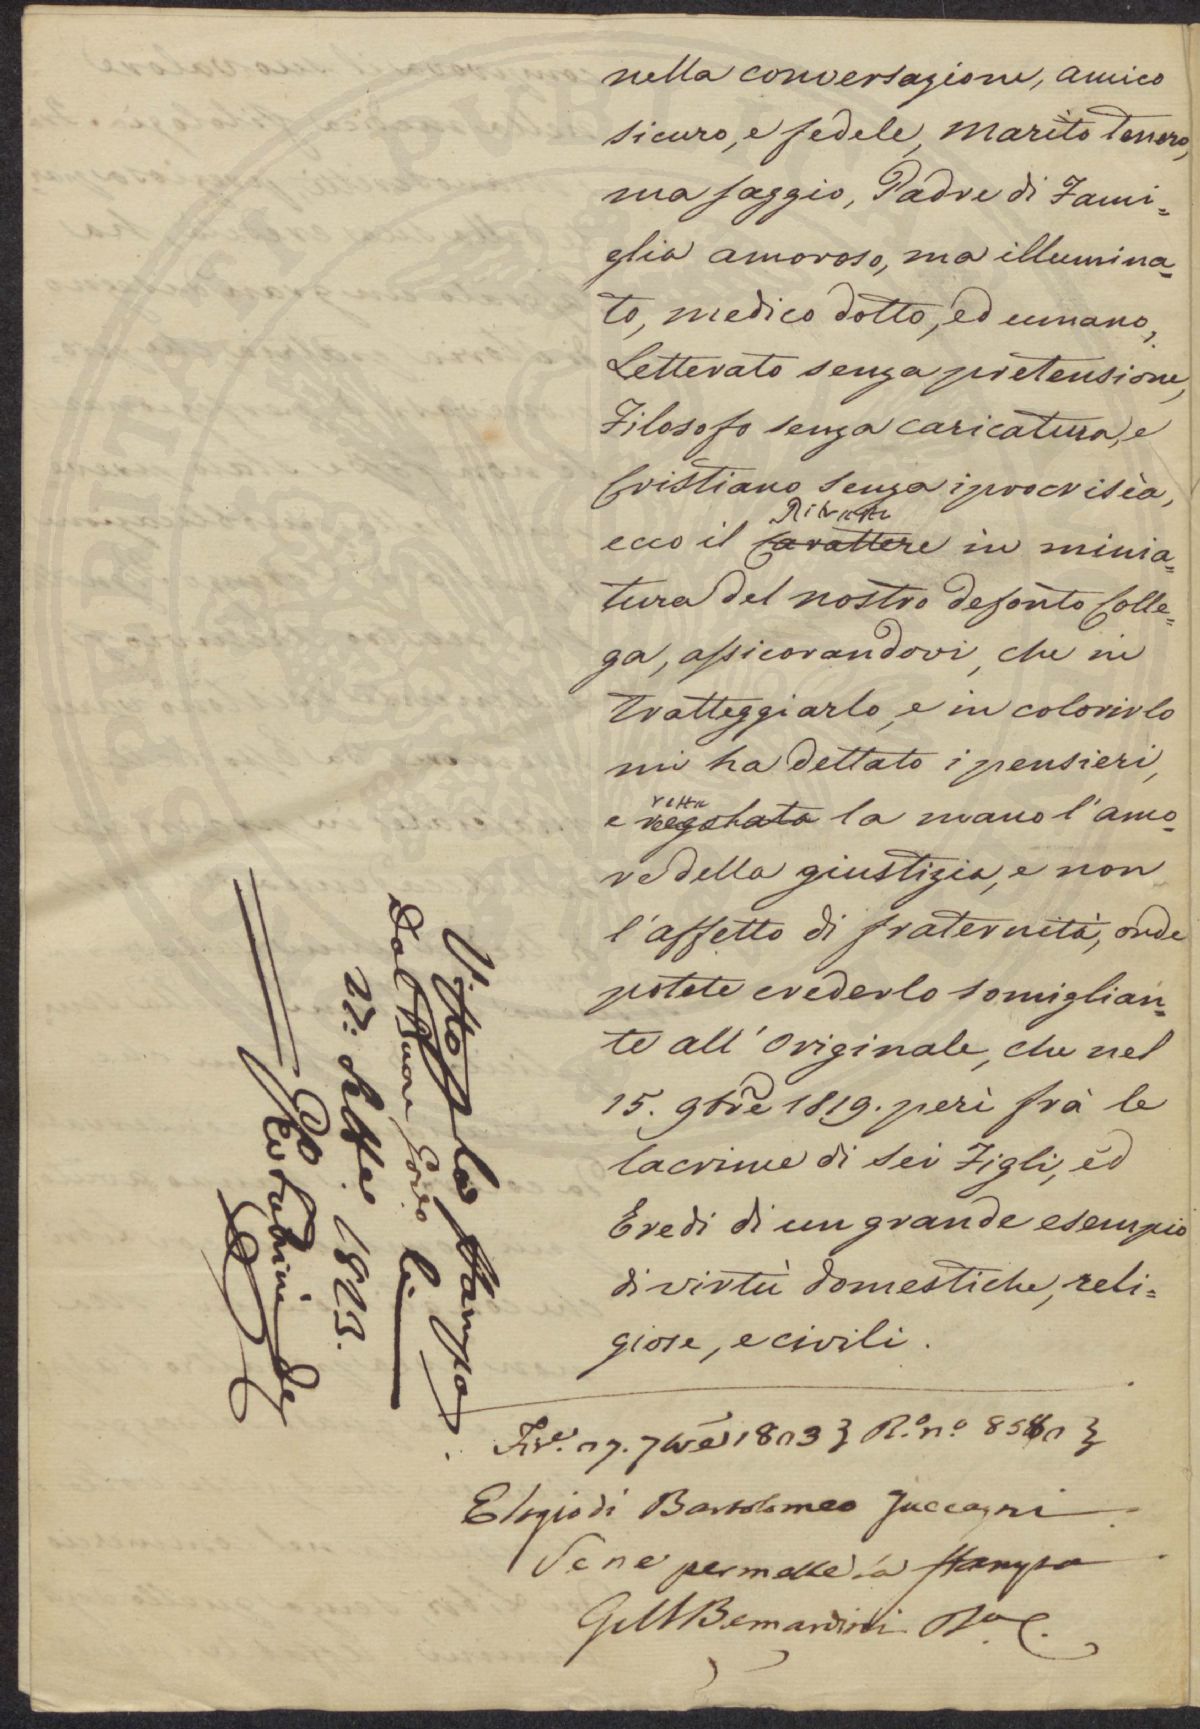 nella conversazione, amico
sicuro, e fedele, Marito tenero,
ma saggio, Padre di Fami=
glia amoroso, ma illumina=
to, medico dotto, ed umano,
Letterato senza pretensione,
Filosofo senza caricatura, e
Cristiano senza iprocrisia,
Ritratto
ecco il Carattere in minia=
tura del nostro defonto Colle=
ga, assicorandovi, che in
tratteggiarlo, e in colorirlo
mi ha dettato i pensieri,
retta
e la mano l'amo=
re della giustizia, e non
l'affetto di fraternità, onde
potete crederlo somiglian=
te all' Originale, che nel
15. 9bre 1819. perì frà le
lacrime di sei Figli, ed
Eredi di un grande esempio
di virtù domestiche, reli=
giose, e civili.
Elogio di Bartolomeo Zuccagni
Se ne permette la stampa
Bernardini
Visto p la stampa
Dal Buon Gov. li
22: 1823.